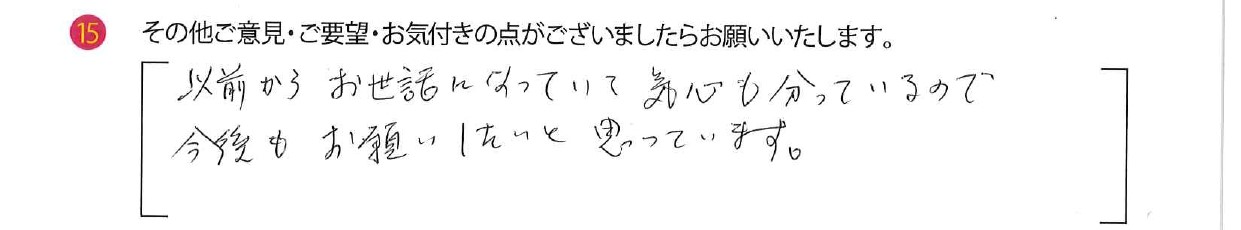 15 その他ご意見・ご要望・お気付きの点がございましたらお願いいたします。
以前からお世話になっていて気心も分っているので
今後もお願いしたいと思っています。